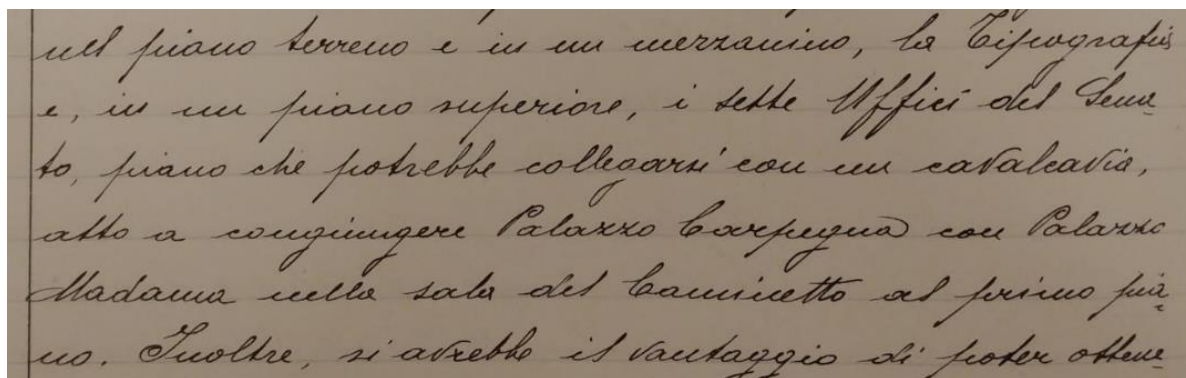 nel piano terreno e in un mezzanino, la Tipografia
e, in un piano superiore, i sette Uffici del Sena-
to, piano che potrebbe collegarsi con un cavalcavia,
atto a congiungere Palazzo Carpegna con Palazzo
Madama nella sala del Caminetto al primo pia-
no. Inoltre, si avrebbe il vantaggio di poter ottene-